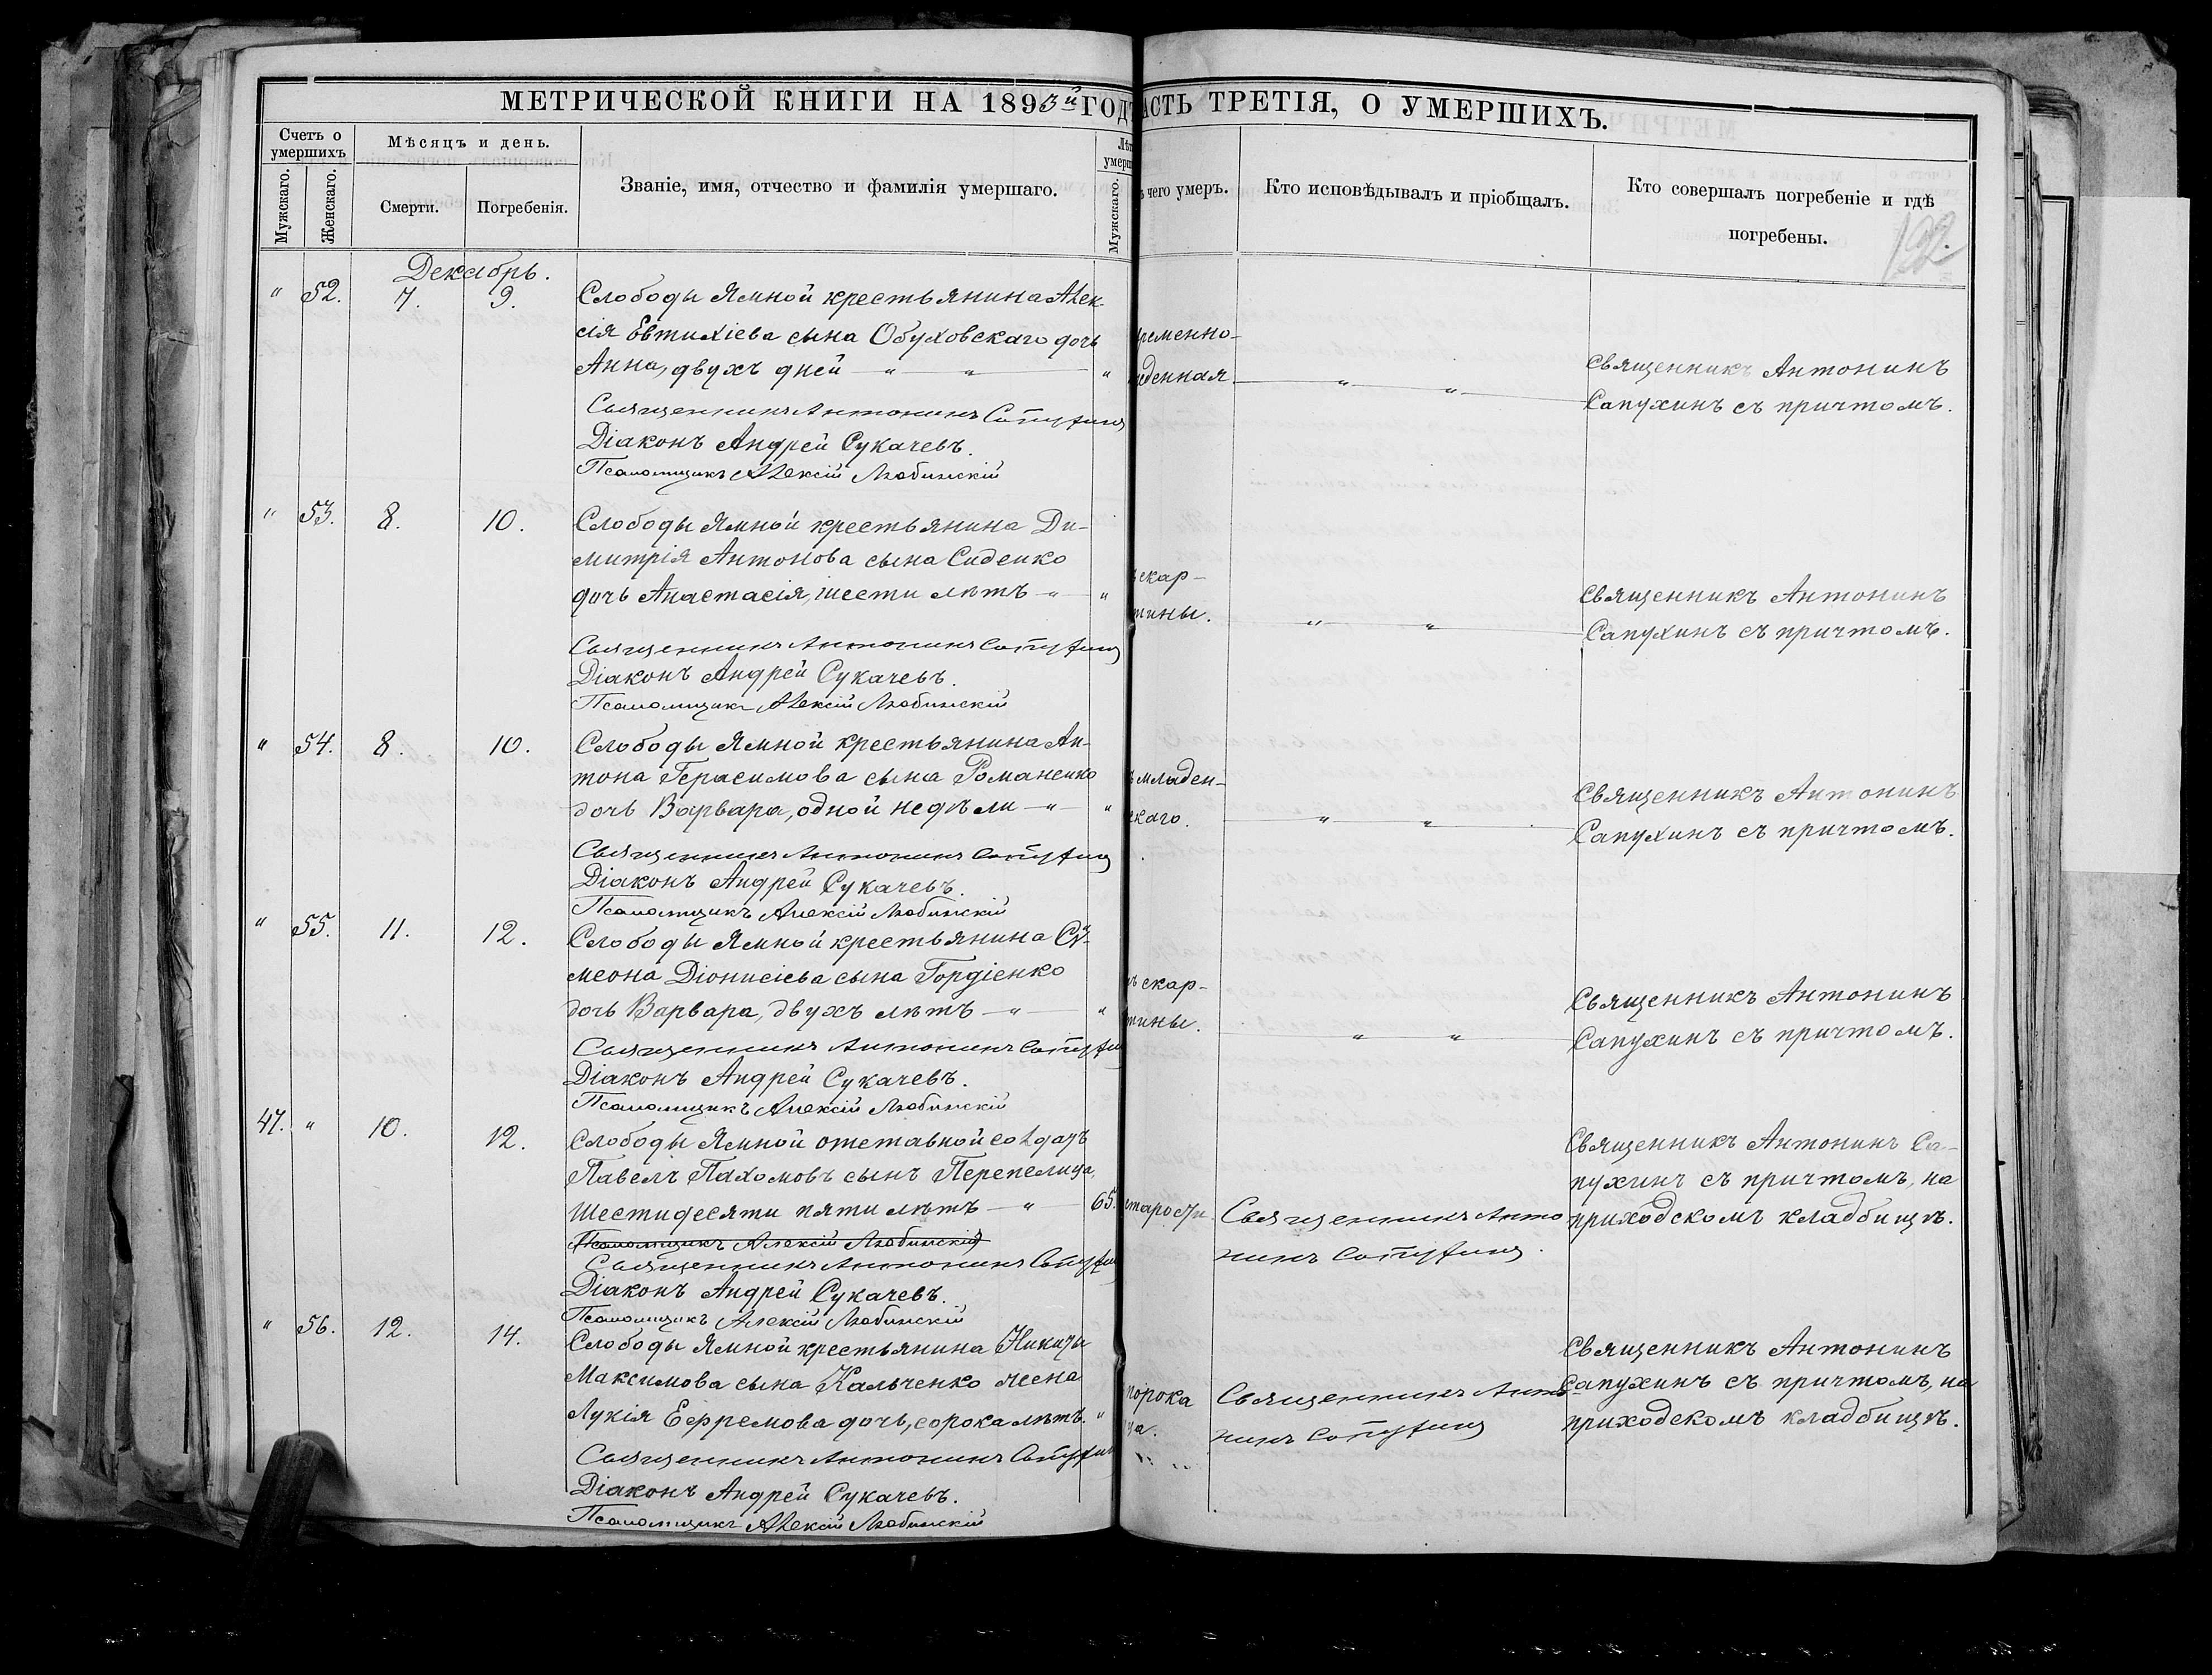 МЕТРИЧЕСКОЙ КНИГИ НА 1893й ГОДЪ
АСТЬ ТРЕТІЯ, О УМЕРШИХЪ.
Счетъ о умершихъ
Мужскаго.
Женскаго.
Мѣсяцъ и день.
Смерти.
Погребенія.
Званіе, имя, отчество и фамилія умершаго.
Мужскаго.
ъ чего умеръ.
Кто исповѣдывалъ и пріобщалъ.
Кто совершалъ погребеніе и гдѣ
погребены.
122.
Декабрь.
" 52. 7. 9. Слободы Ямной крестьянина Алек-
сія Евтихіева сына Обуховскаго дочь
Анна, двухъ дней — " — " — "
Священникъ Антонинъ Сапухинъ
Діаконъ Андрей Сукачевъ.
Псаломщикъ Алексій Любинскій
ременно-
денная. — " — " —
Священникъ Антонинъ
Сапухинъ съ причтомъ.
" 53. 8. 10. Слободы Ямной крестьянина Ди-
митрія Антонова сына Сиденко
дочь Анастасія, шести лѣтъ — " — "
Священникъ Антонинъ Сапухинъ
Діаконъ Андрей Сукачевъ.
Псаломщикъ Алексій Любинскій
ъ скар-
тины. " — " —
Священникъ Антонинъ
Сапухинъ съ причтомъ.
" 54. 8. 10. Слободы Ямной крестьянина Ан-
тона Герасимова сына Романенко
дочь Варвара, одной недѣли — " — "
Священникъ Антонинъ Сапухинъ
Діаконъ Андрей Сукачевъ.
Псаломщикъ Алексій Любинскій
ъ младен-
скаго. — " — " —
Священникъ Антонинъ
Сапухинъ съ причтомъ.
" 55. 11. 12. Слободы Ямной крестьянина Си-
меона Діонисіева сына Гордіенко
дочь Варвара, двухъ лѣтъ — " — "
Священникъ Антонинъ Сапухинъ
Діаконъ Андрей Сукачевъ.
Псаломщикъ Алексій Любинскій
ъ скар-
тины. — " — " —
Священникъ Антонинъ
Сапухинъ съ причтомъ.
47. " 10. 12. Слободы Ямной отставной солдатъ
Павелъ Пахомовъ сынъ Перепелица,
шестидесяти пяти лѣтъ — " — 65.
Псаломщикъ Алексій Любинскій
Священникъ Антонинъ Сапухинъ
Діаконъ Андрей Сукачевъ.
Псаломщикъ Алексій Любинскій
старости
Священникъ Анто
нинъ Сапухинъ.
Священникъ Антонинъ Са-
пухинъ съ причтомъ, на
приходскомъ кладбищѣ.
" 56. 12. 14. Слободы Ямной крестьянина Никиты
Максимова сына Кальченко жена
Лукія Ефремова дочь, сорока лѣтъ. "
Священникъ Антонинъ Сапухинъ
Діаконъ Андрей Сукачевъ.
Псаломщикъ Алексій Любинскій
порока
ца.
Священникъ Анто
нинъ Сапухинъ
Священникъ Антонинъ
Сапухинъ съ причтомъ, на
приходскомъ кладбищѣ.